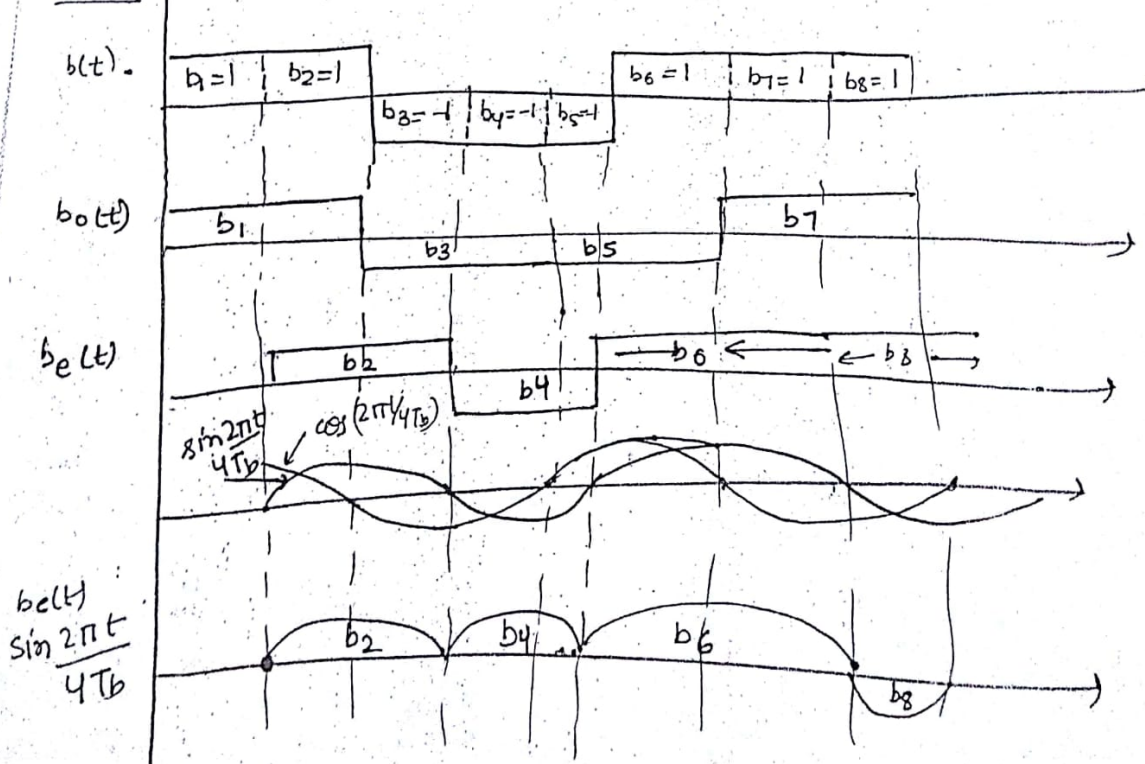 b(t).
b1=1
b2=1
b3=-1
b4=-1
b5=-1
b6=1
b7=1
b8=1
bo(t)
b1
b3
b5
b7
be(t)
b2
b4
b6
b8
sin 2πt
4Tb
cos(2πt/4Tb)
be(t)
sin 2πt
4Tb
b2
b4
b6
b8